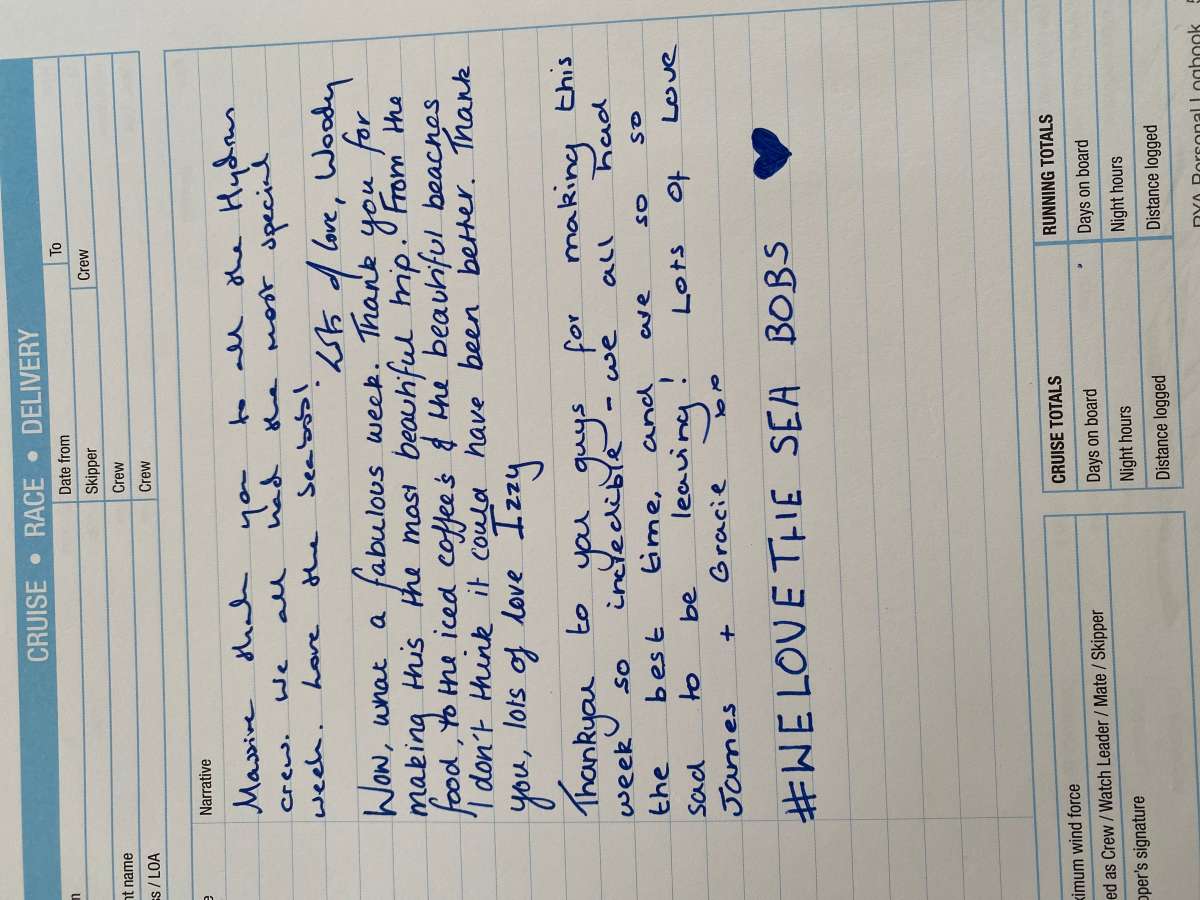 CRUISE • RACE • DELIVERY
Date from
To
Skipper
Crew
Crew
Crew
nt name
s / LOA
Narrative
Massive thank you to all the Hydrus
crew. We all had the most special
week. Love the seabobs!
Lots of love, Woody
Wow, what a fabulous week. Thank you for
making this the most beautiful trip. From the
food, to the iced coffees & the beautiful beaches
I don't think it could have been better. Thank
you, lots of love Izzy
Thankyou to you guys for making this
week so incredible - we all had
the best time, and are so so
sad to be leaving! Lots of Love
James + Gracie xox
#WE LOVE THE SEA BOBS ♥
ximum wind force
ed as Crew / Watch Leader / Mate / Skipper
pper's signature
CRUISE TOTALS
Days on board
Night hours
Distance logged
RUNNING TOTALS
Days on board
Night hours
Distance logged
RYA Personal Logbook